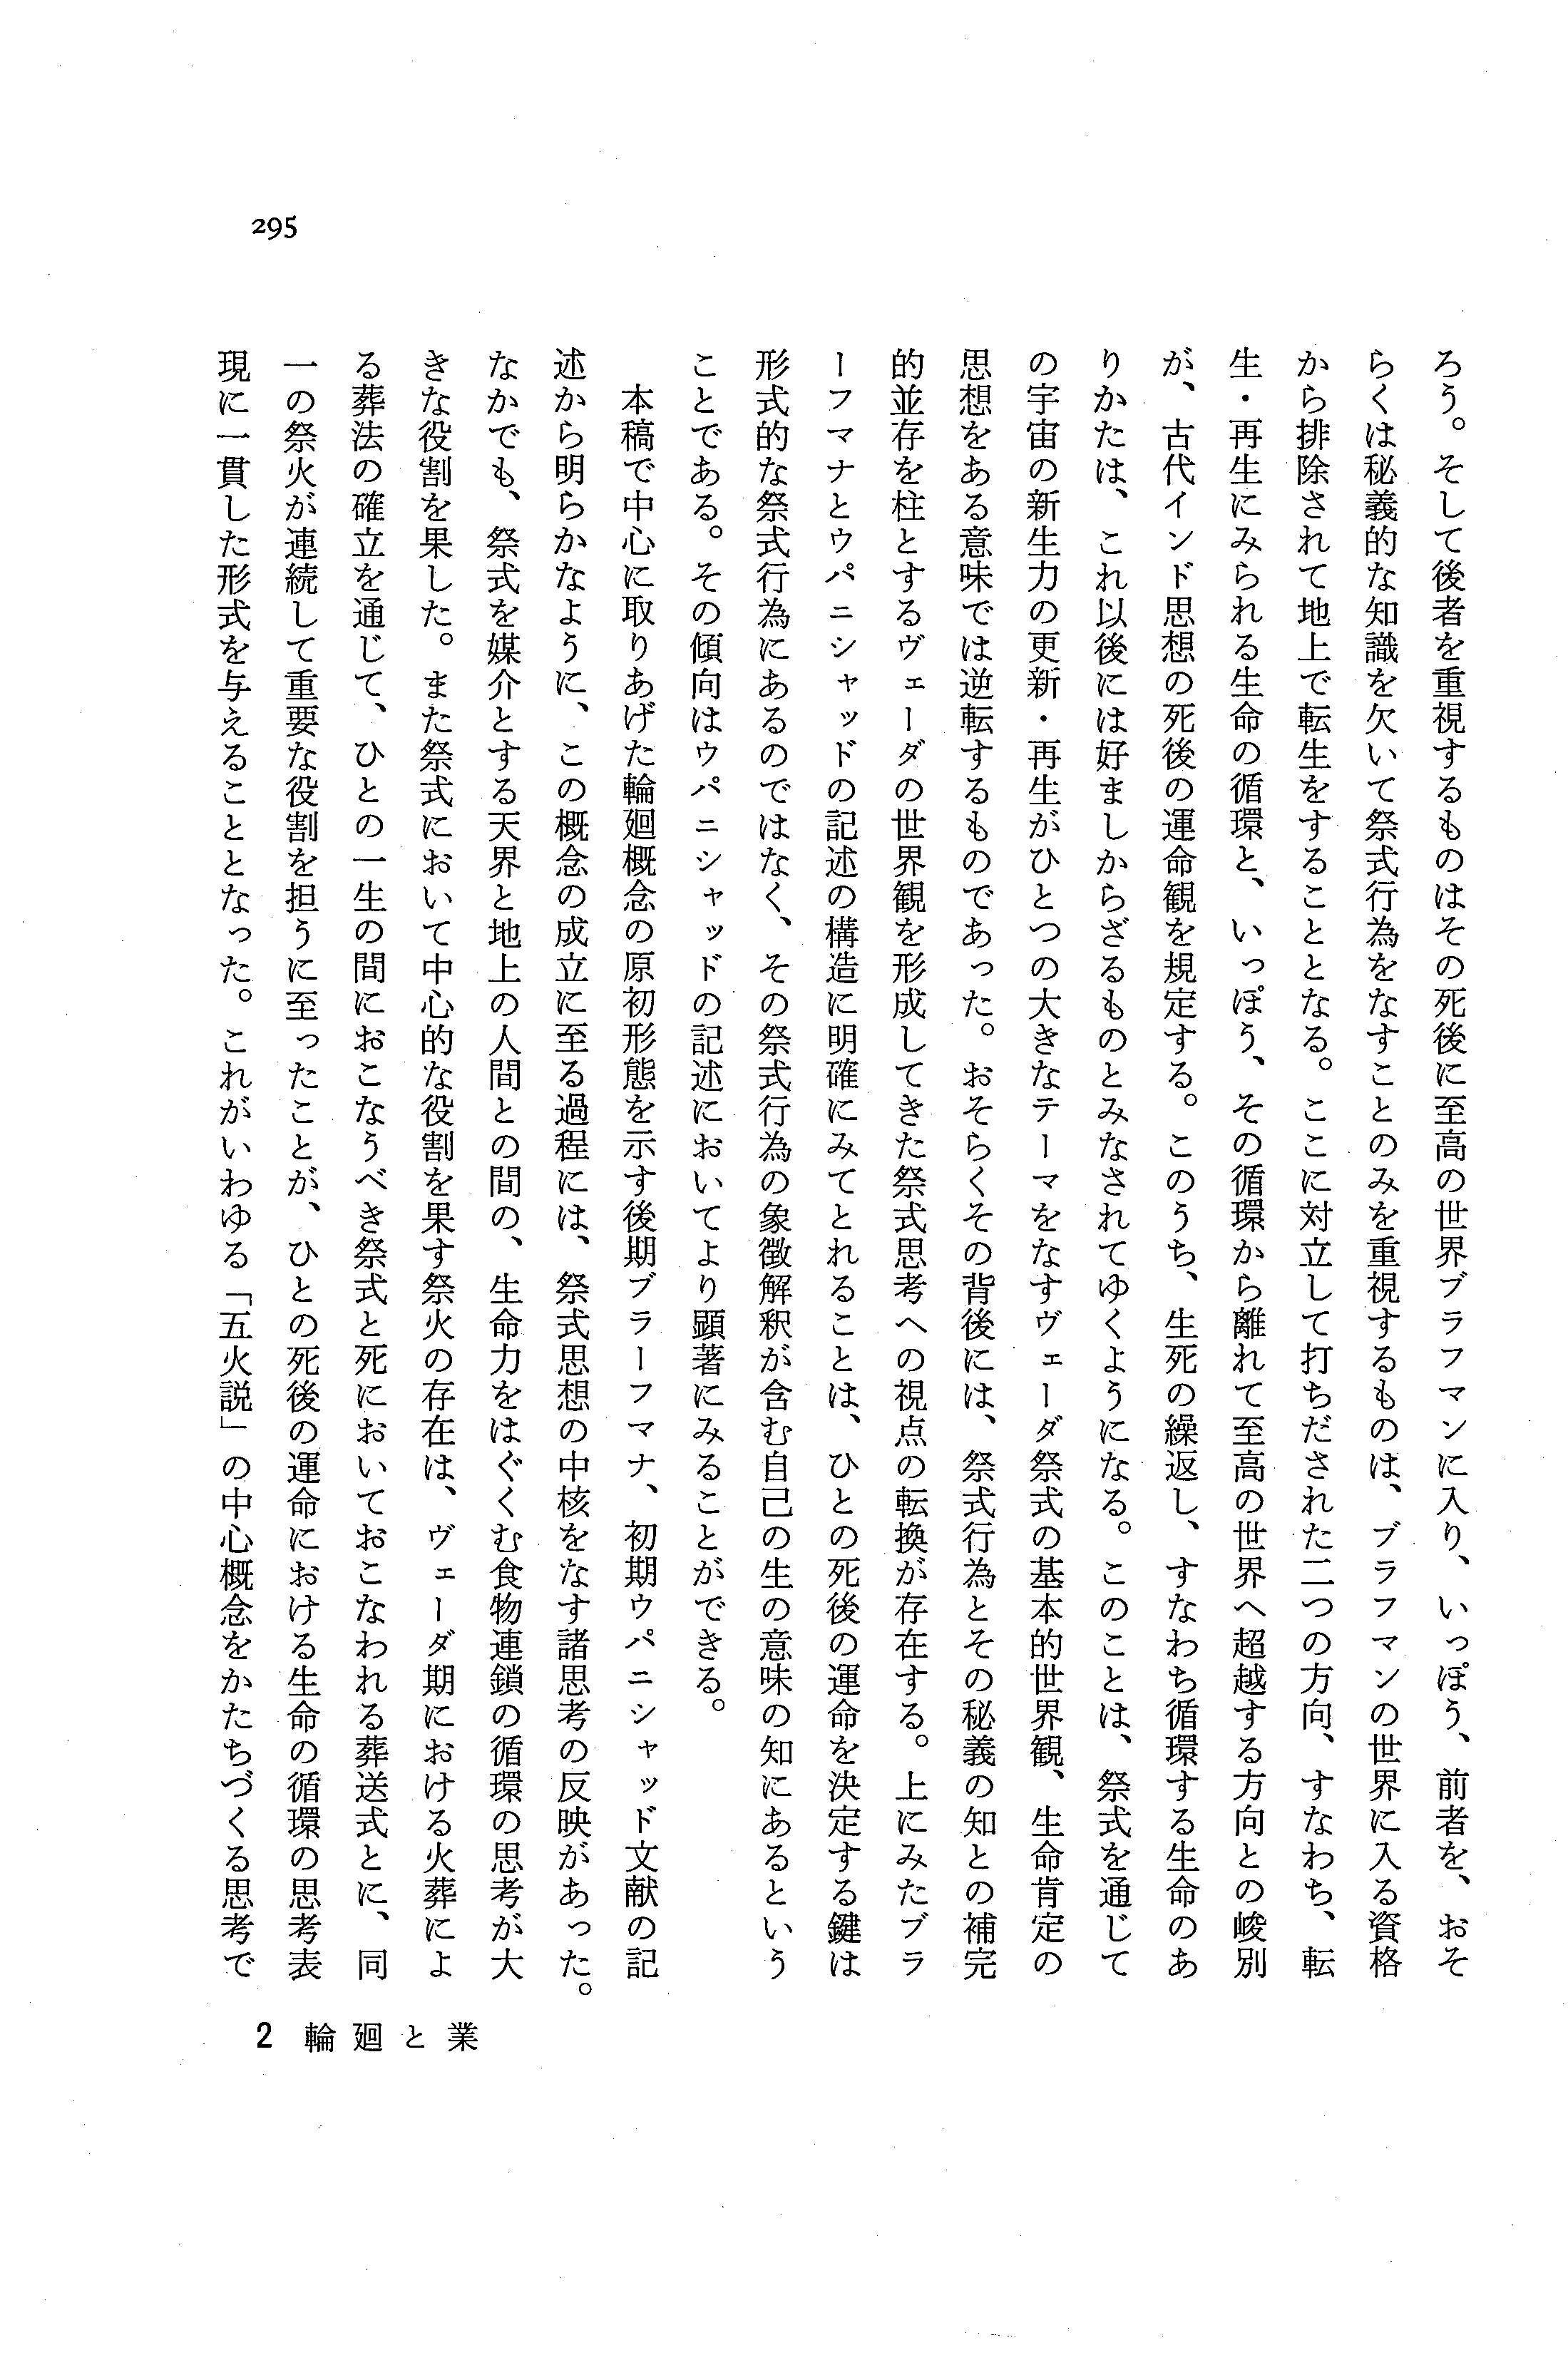 295
ろう。そして後者を重視するものはその死後に至高の世界ブラフマンに入り、いっぽう、前者を、おそ
らくは秘義的な知識を欠いて祭式行為をなすことのみを重視するものは、ブラフマンの世界に入る資格
から排除されて地上で転生をすることとなる。ここに対立して打ちだされた二つの方向、すなわち、転
生・再生にみられる生命の循環と、いっぽう、その循環から離れて至高の世界へ超越する方向との峻別
が、古代インド思想の死後の運命観を規定する。このうち、生死の繰返し、すなわち循環する生命のあ
りかたは、これ以後には好ましからざるものとみなされてゆくようになる。このことは、祭式を通じて
の宇宙の新生力の更新・再生がひとつの大きなテーマをなすヴェーダ祭式の基本的世界観、生命肯定の
思想をある意味では逆転するものであった。おそらくその背後には、祭式行為とその秘義の知との補完
的並存を柱とするヴェーダの世界観を形成してきた祭式思考への視点の転換が存在する。上にみたブラ
ーフマナとウパニシャッドの記述の構造に明確にみてとれることは、ひとの死後の運命を決定する鍵は
形式的な祭式行為にあるのではなく、その祭式行為の象徴解釈が含む自己の生の意味の知にあるという
ことである。その傾向はウパニシャッドの記述においてより顕著にみることができる。
本稿で中心に取りあげた輪廻概念の原初形態を示す後期ブラーフマナ、初期ウパニシャッド文献の記
述から明らかなように、この概念の成立に至る過程には、祭式思想の中核をなす諸思考の反映があった。
なかでも、祭式を媒介とする天界と地上の人間との間の、生命力をはぐくむ食物連鎖の循環の思考が大
きな役割を果した。また祭式において中心的な役割を果す祭火の存在は、ヴェーダ期における火葬によ
る葬法の確立を通じて、ひとの一生の間におこなうべき祭式と死においておこなわれる葬送式とに、同
一の祭火が連続して重要な役割を担うに至ったことが、ひとの死後の運命における生命の循環の思考表
現に一貫した形式を与えることとなった。これがいわゆる「五火説」の中心概念をかたちづくる思考で
2 輪廻と業